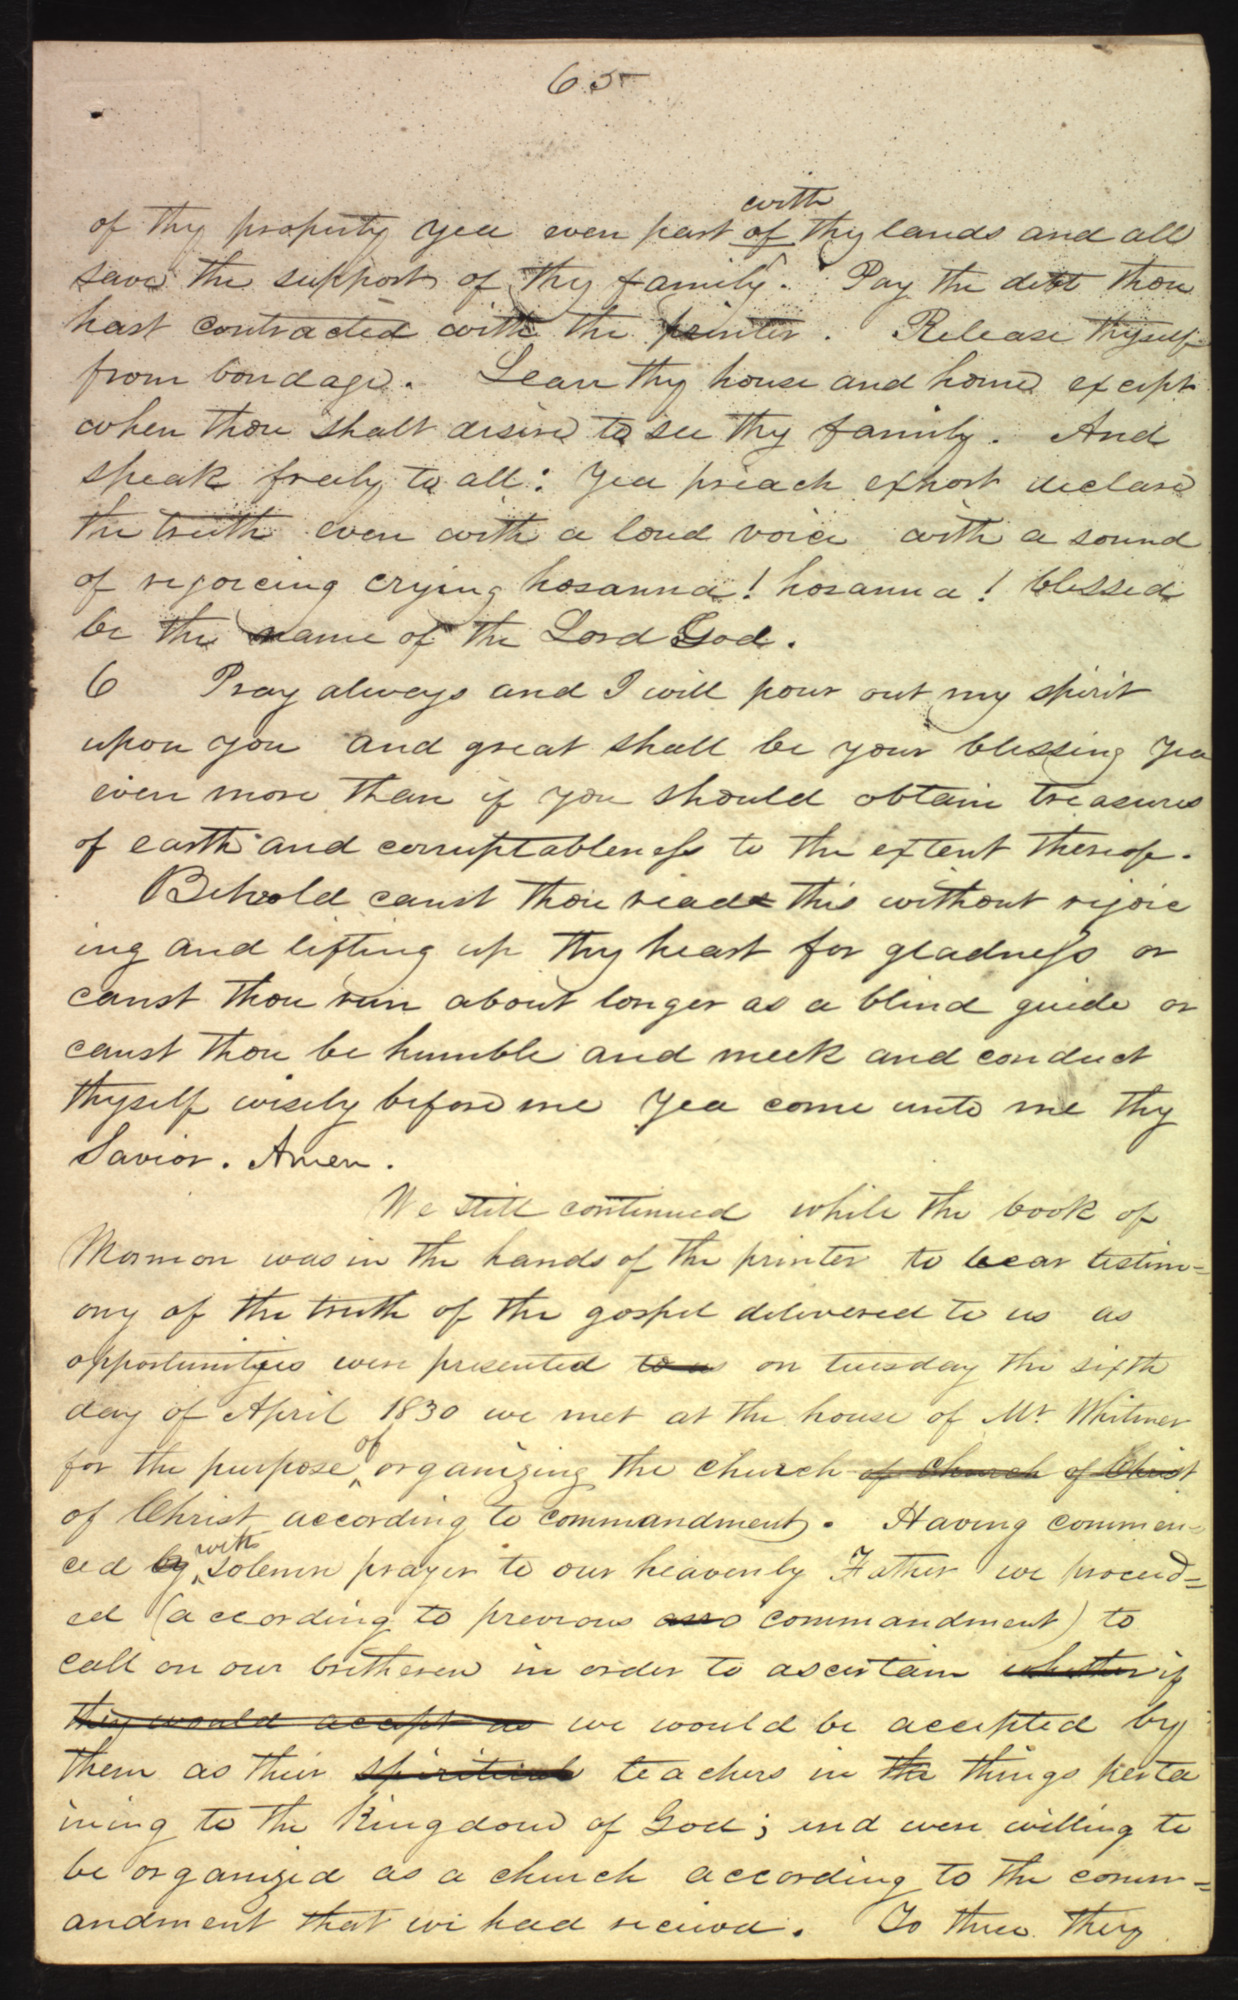 65
with
of thy property yea even part of thy lands and all
save the support of thy family. Pay the debt thou
hast contracted with the printer. Release thyself
from bondage. Leave thy house and home except
when thou shalt desire to see thy family. And
speak freely to all: yea preach exhort declare
the truth even with a loud voice with a sound
of rejoicing crying hosanna! hosanna! blessed
be the name of the Lord God.
6 Pray always and I will pour out my spirit
upon you and great shall be your blessing yea
even more than if you should obtain treasures
of earth and corruptableness to the extent thereof.
Behold canst thou read this without rejoic
ing and lifting up thy heart for gladness or
canst thou run about longer as a blind guide or
canst thou be humble and meek and conduct
thyself wisely before me yea come unto me thy
Savior. Amen.
We still continued while the book of
Mormon was in the hands of the printer to bear testim=
ony of the truth of the gospel delivered to us as
opportunities were presented to us on tuesday the sixth
day of April 1830 we met at the house of Mr Whitmer
for the purpose of organizing the church of Church of Christ
of Christ according to commandment. Having commen=
ced by with solemn prayer to our heavenly Father we proceed=
ed (according to previous commandment) to
call on our bretheren in order to ascertain whether if
they would accept us we would be accepted by
them as their spiritual teachers in the things perta
ining to the Kingdom of God; and were willing to
be organized as a church according to the comm=
andment that we had received. To these they